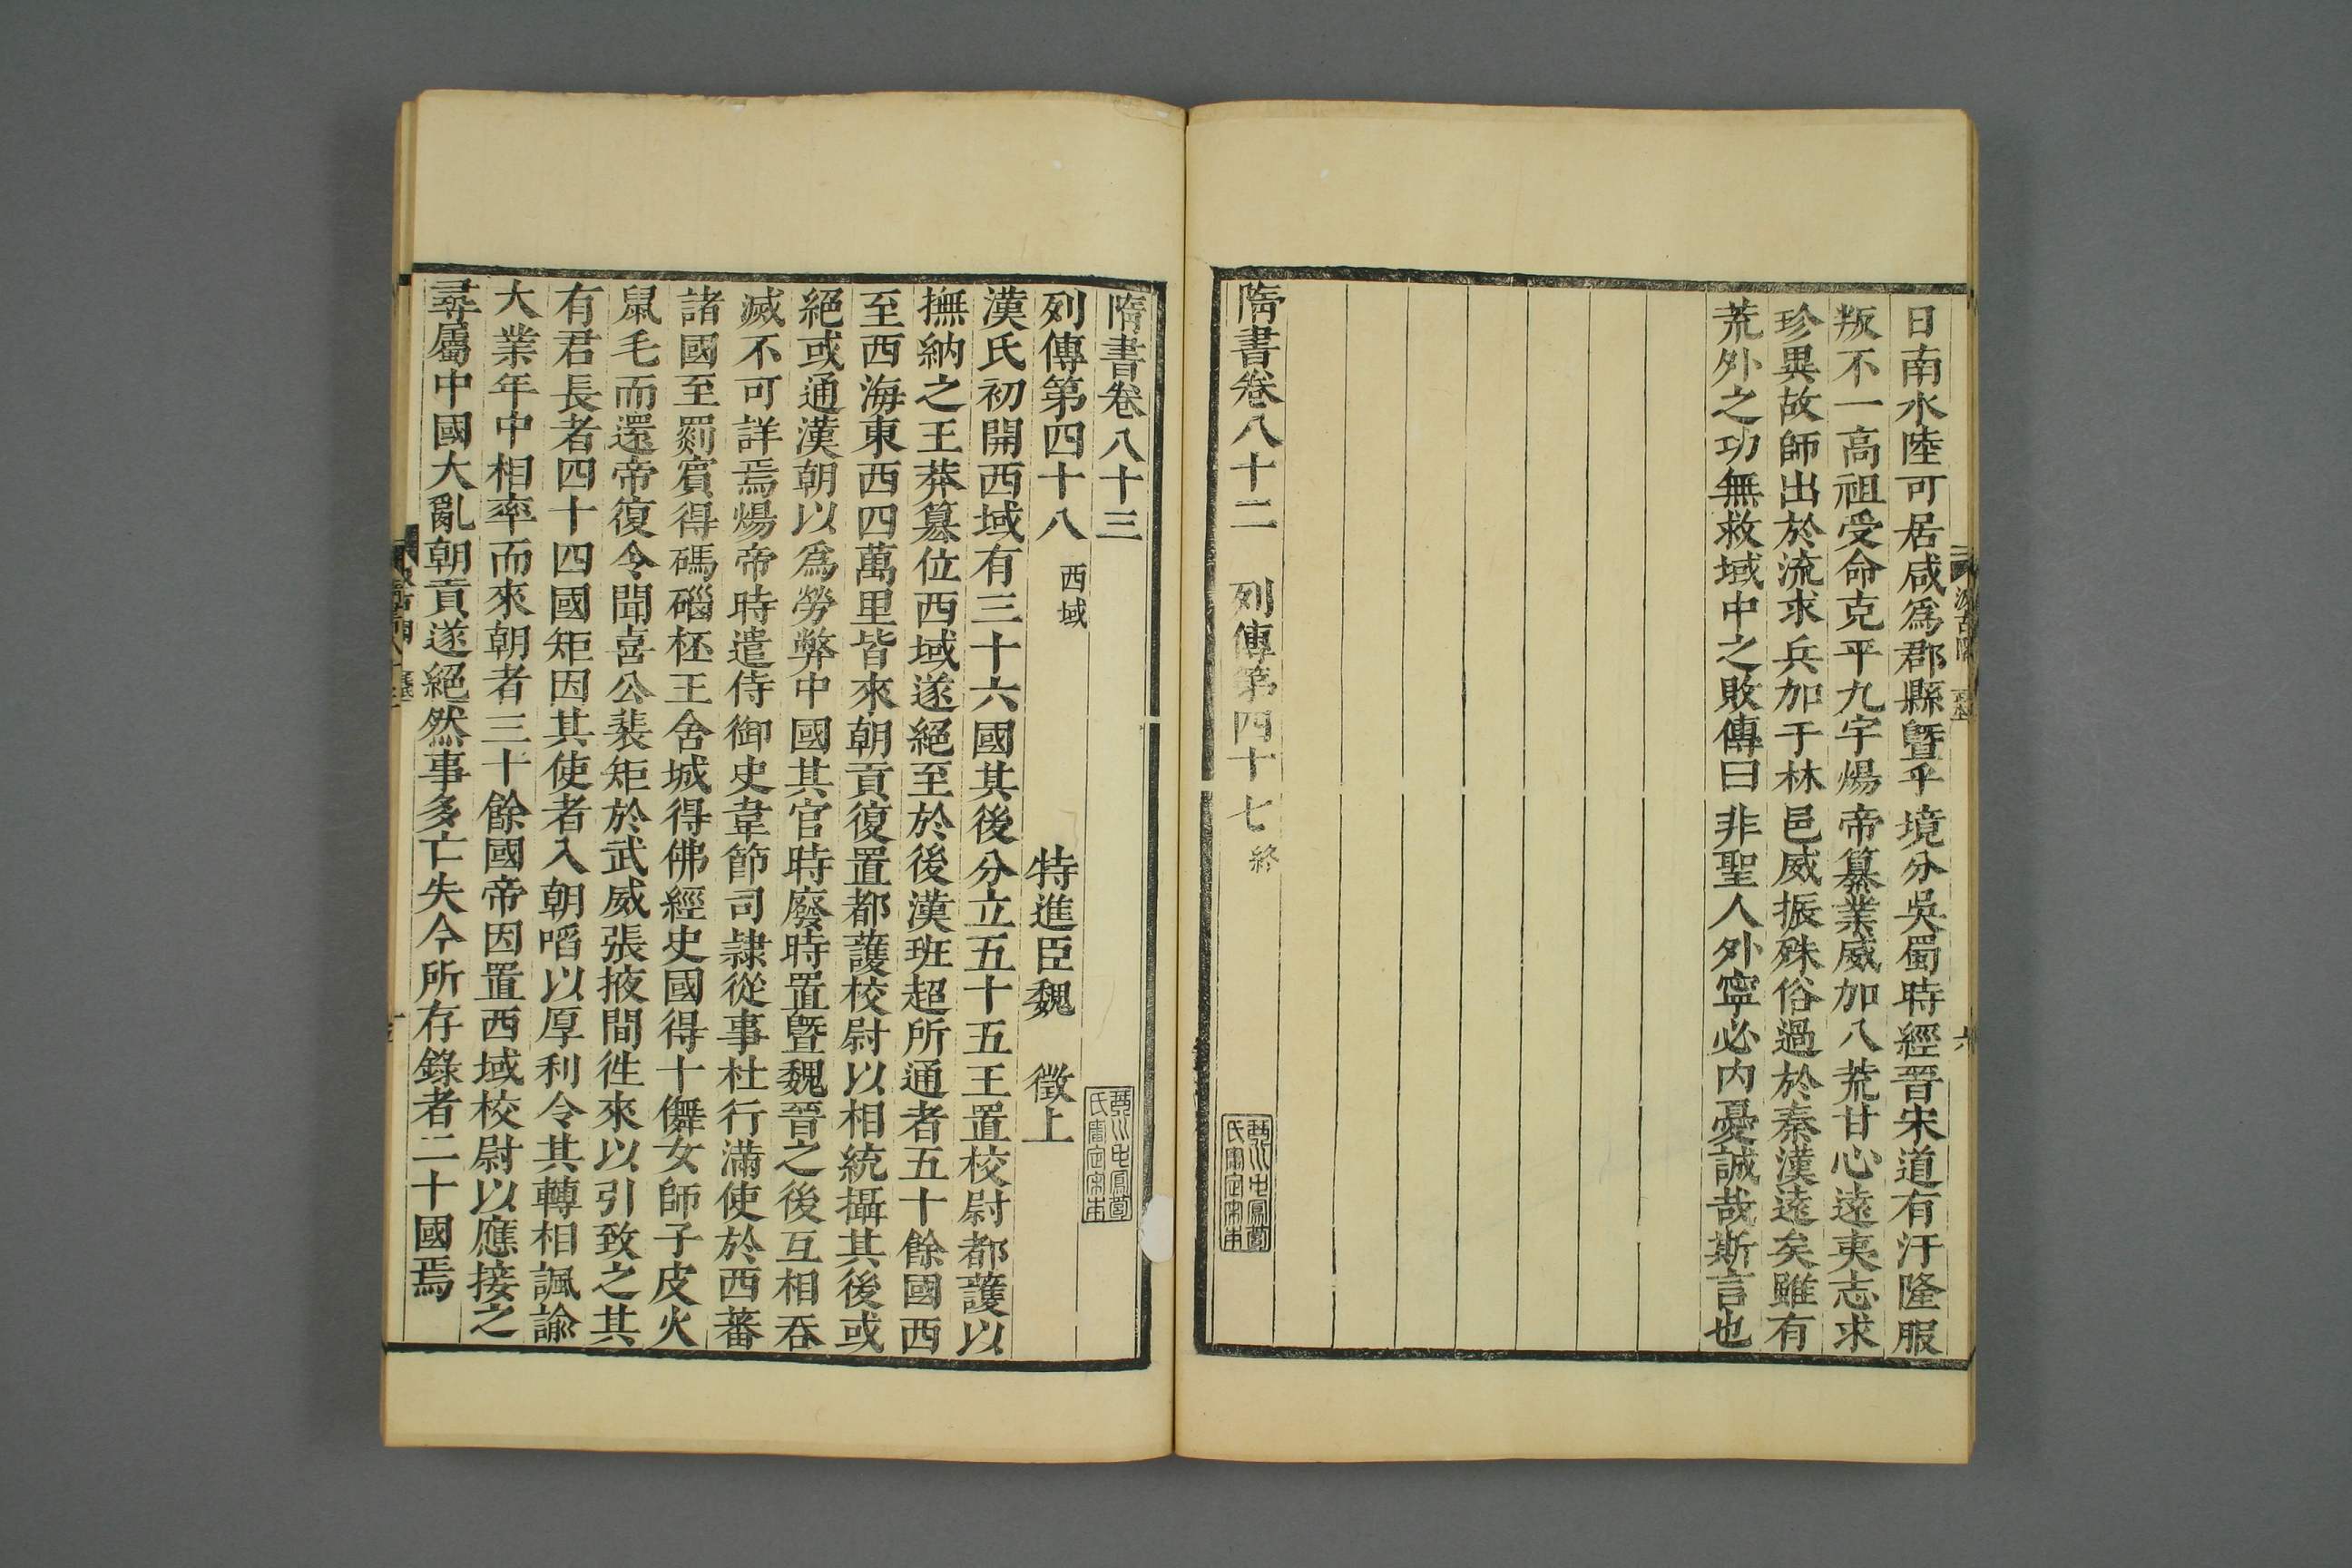 日南水陸可居咸爲郡縣曁乎境分吳蜀時經晉宋道有汙隆服
叛不一高祖受命克平九宇煬帝纂業威加八荒甘心遠夷志求
珍異故師出於流求兵加于林邑威振殊俗過於秦漢遠矣雖有
荒外之功無救域中之敗傳曰非聖人外寧必內憂誠哉斯言也
隋書卷八十二　列傳第四十七終
隋書卷八十三
列傳第四十八　西域　特進臣魏　徵上
漢氏初開西域有三十六國其後分立五十五王置校尉都護以
撫納之王莽篡位西域遂絕至於後漢班超所通者五十餘國西
至西海東西四萬里皆來朝貢復置都護校尉以相統攝其後或
絕或通漢朝以爲勞弊中國其官時廢時置曁魏晉之後互相吞
滅不可詳焉煬帝時遣侍御史韋節司隷從事杜行滿使於西蕃
諸國至罽賓得碼碯杯王舍城得佛經史國得十儛女師子皮火
鼠毛而還帝復令聞喜公裴矩於武威張掖間徃來以引致之其
有君長者四十四國矩因其使者入朝啗以厚利令其轉相諷諭
大業年中相率而來朝者三十餘國帝因置西域校尉以應接之
尋屬中國大亂朝貢遂絕然事多亡失今所存錄者二十國焉